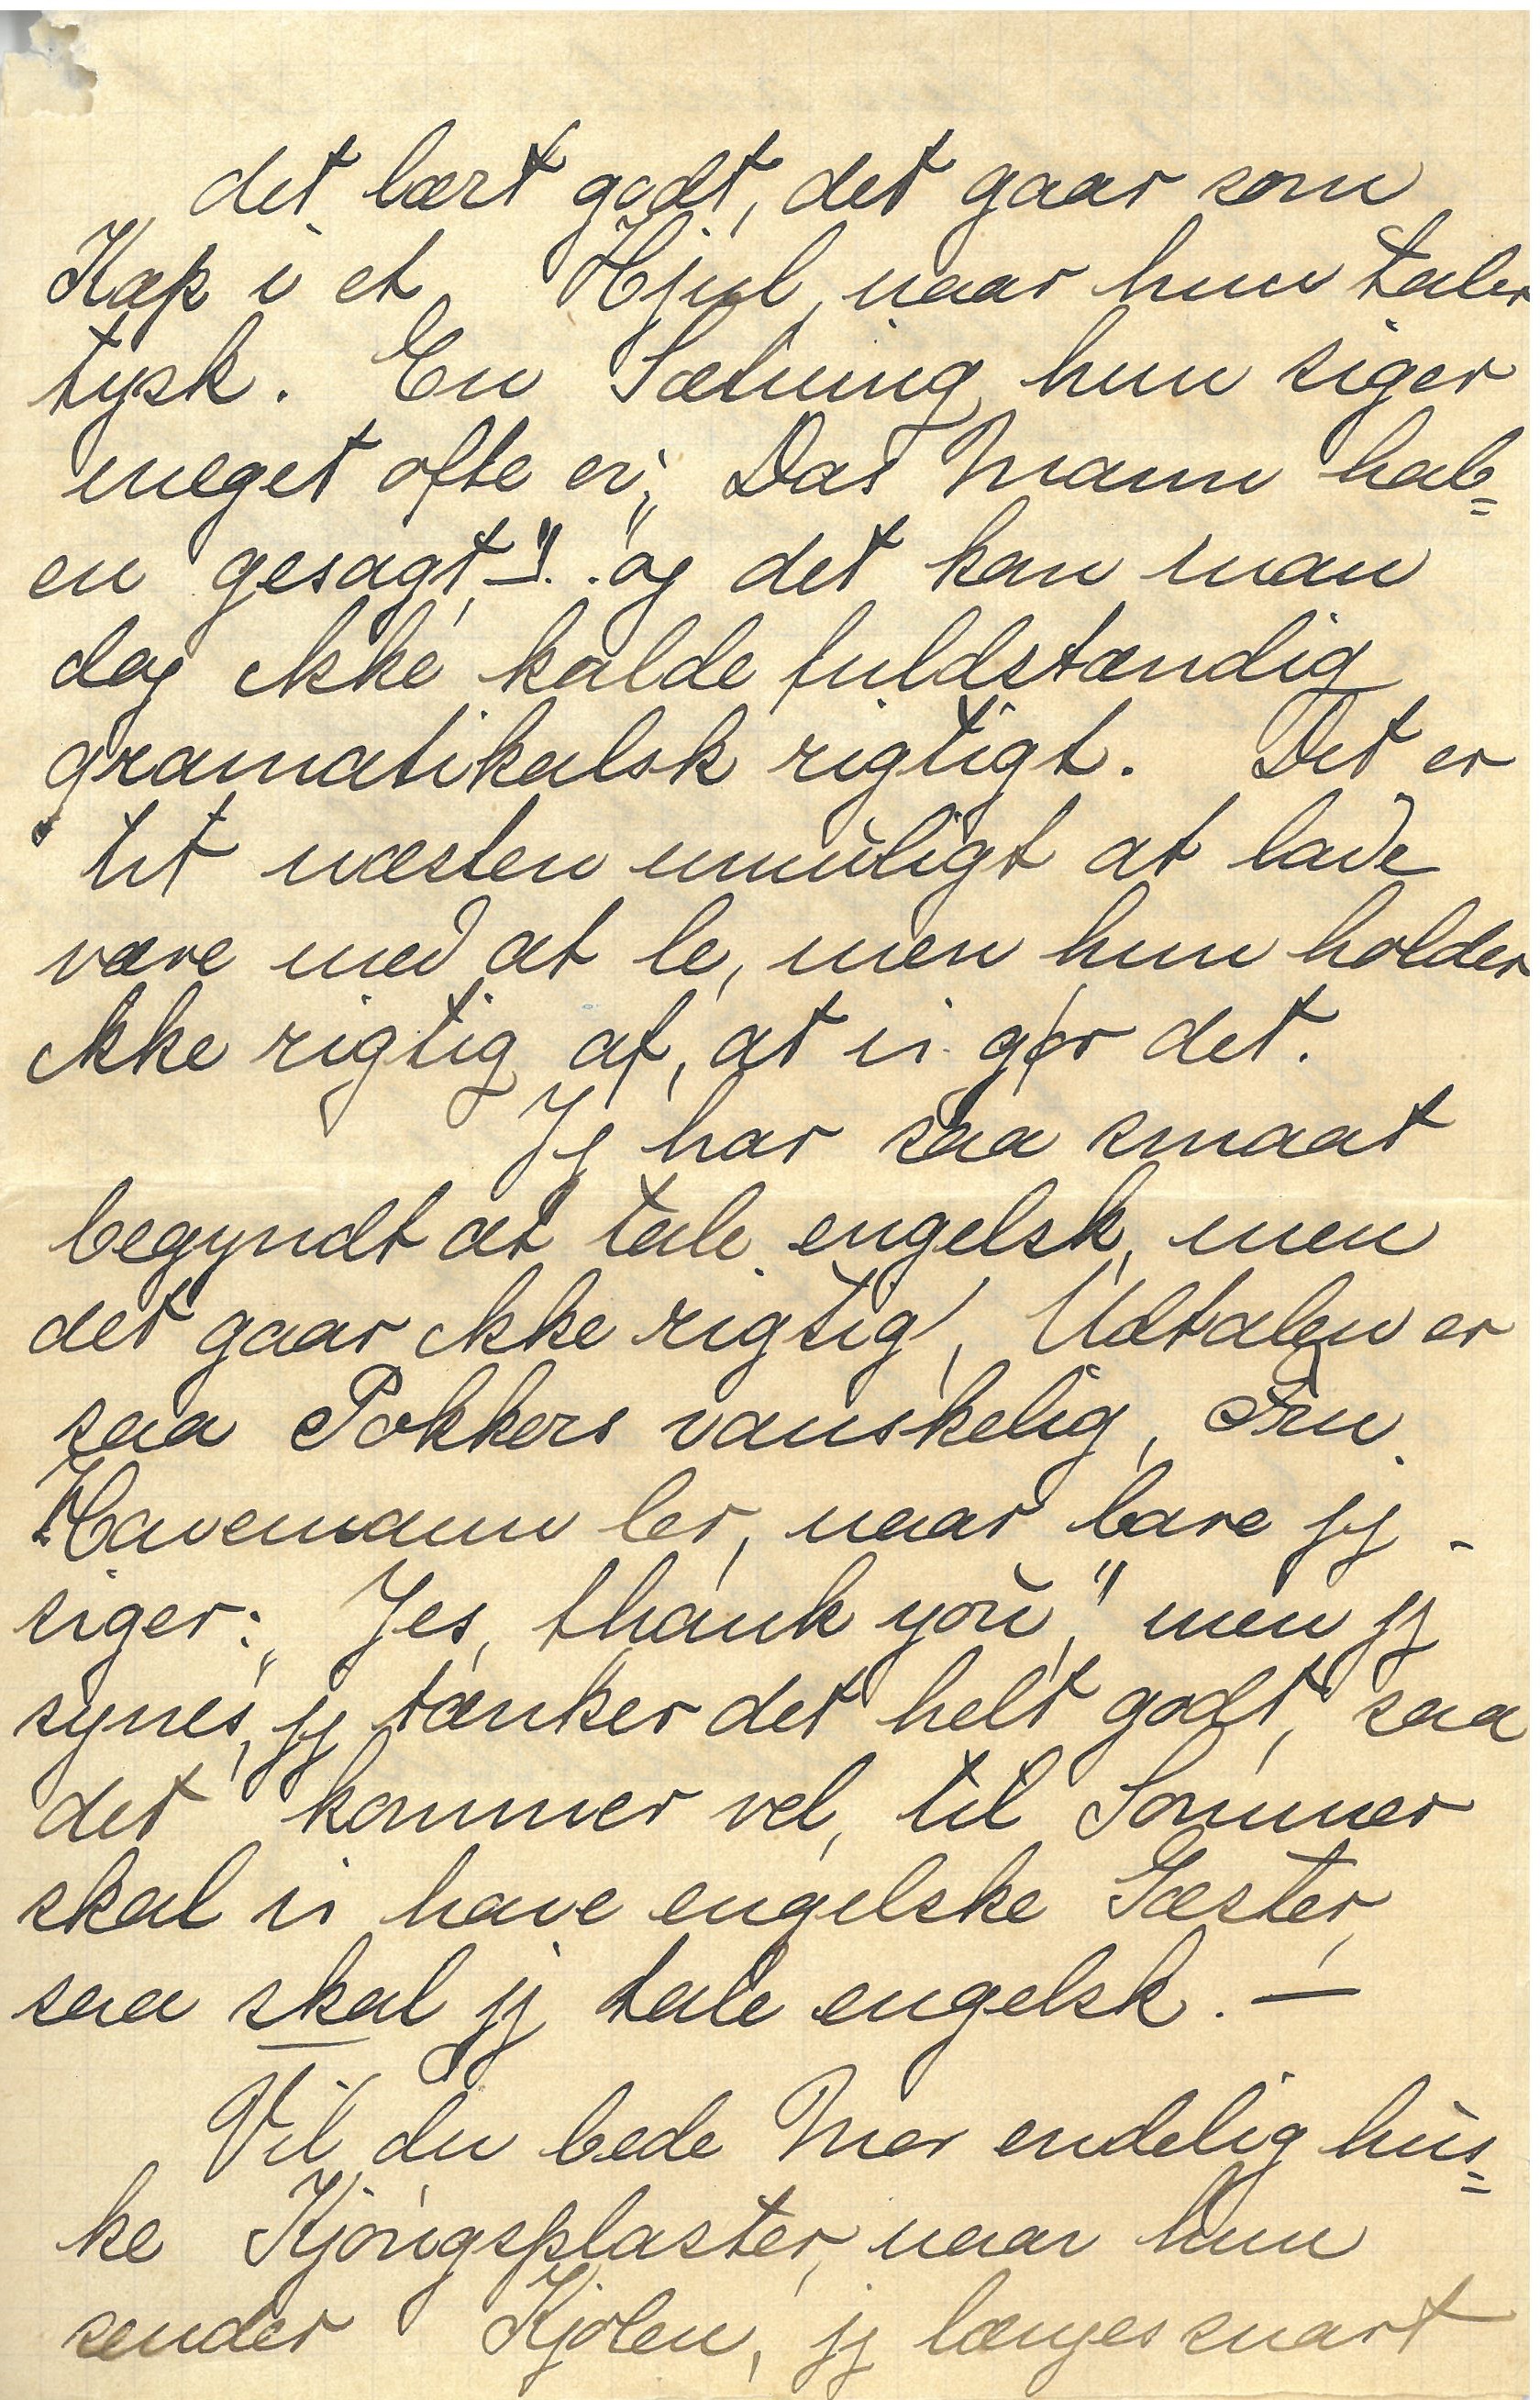 det lært godt, det gaar som
Kæp i et Hjul, naar hun taler
tysk. En Sætning hun siger
meget ofte er; „Das Mann hab=
en gesagt,–". og det kan man
dog ikke kalde fuldstændig
gramatikalsk rigtigt. Det er
tit næsten umuligt at lade
være med at le, men hun holder
ikke rigtig af, at vi gør det.
Jeg har saa smaat
begyndt at tale engelsk, men
det gaar ikke rigtig, Udtalen er
saa Pokkers vanskelig, Fru
Havemann ler, naar bare jeg
siger: „Yes, thank you," men jeg
synes, jeg tænker det helt godt, saa
det kommer vel, til Sommer
skal vi have engelske Gæster,
saa skal jeg tale engelsk. –
Vil du bede Mor endelig hus=
ke Kjøngsplaster, naar hun
sender Kjolen, jeg længes snart